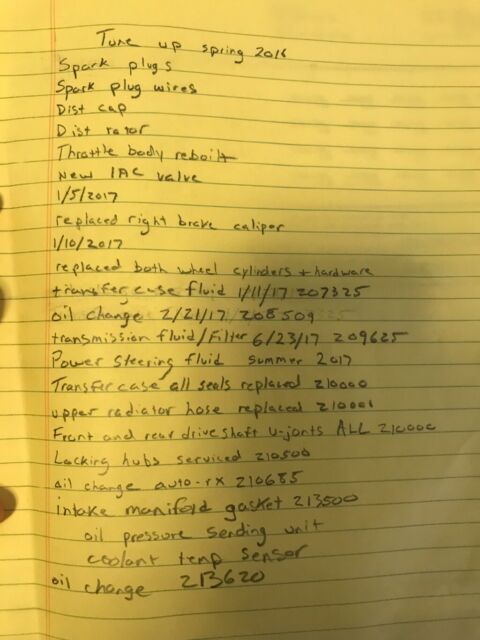 Tune up spring 2016
Spark plugs
Spark plug wires
Dist cap
Dist rotor
Throttle body rebuilt
New IAC valve
1/5/2017
replaced right brake caliper
1/10/2017
replaced both wheel cylinders + hardware
transfer case fluid 1/11/17 207325
oil change 2/21/17 208509
transmission fluid/Filter 6/23/17 209625
Power steering fluid summer 2017
Transfer case all seals replaced 210000
upper radiator hose replaced
Front and rear driveshaft u-jonts ALL 210000
Locking hubs serviced 210500
oil change auto-rx 210685
intake manifold gasket 213500
oil pressure sending unit
coolant temp sensor
oil change 213620